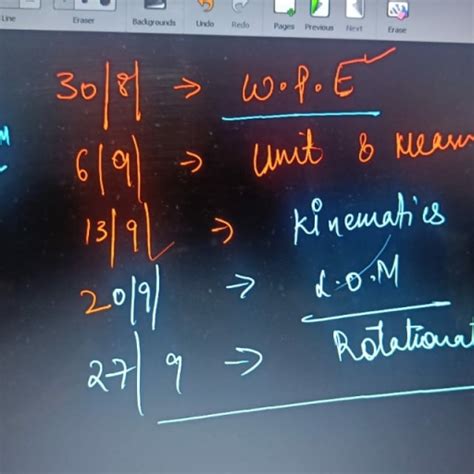 Line Eraser Backgrounds Undo Redo Pages Previous Next Erase
30|8| → W.P.E
6|9| → Unit &
M
13|9| → Kinematics
20|9| → L.O.M
27| 9 → Rotational